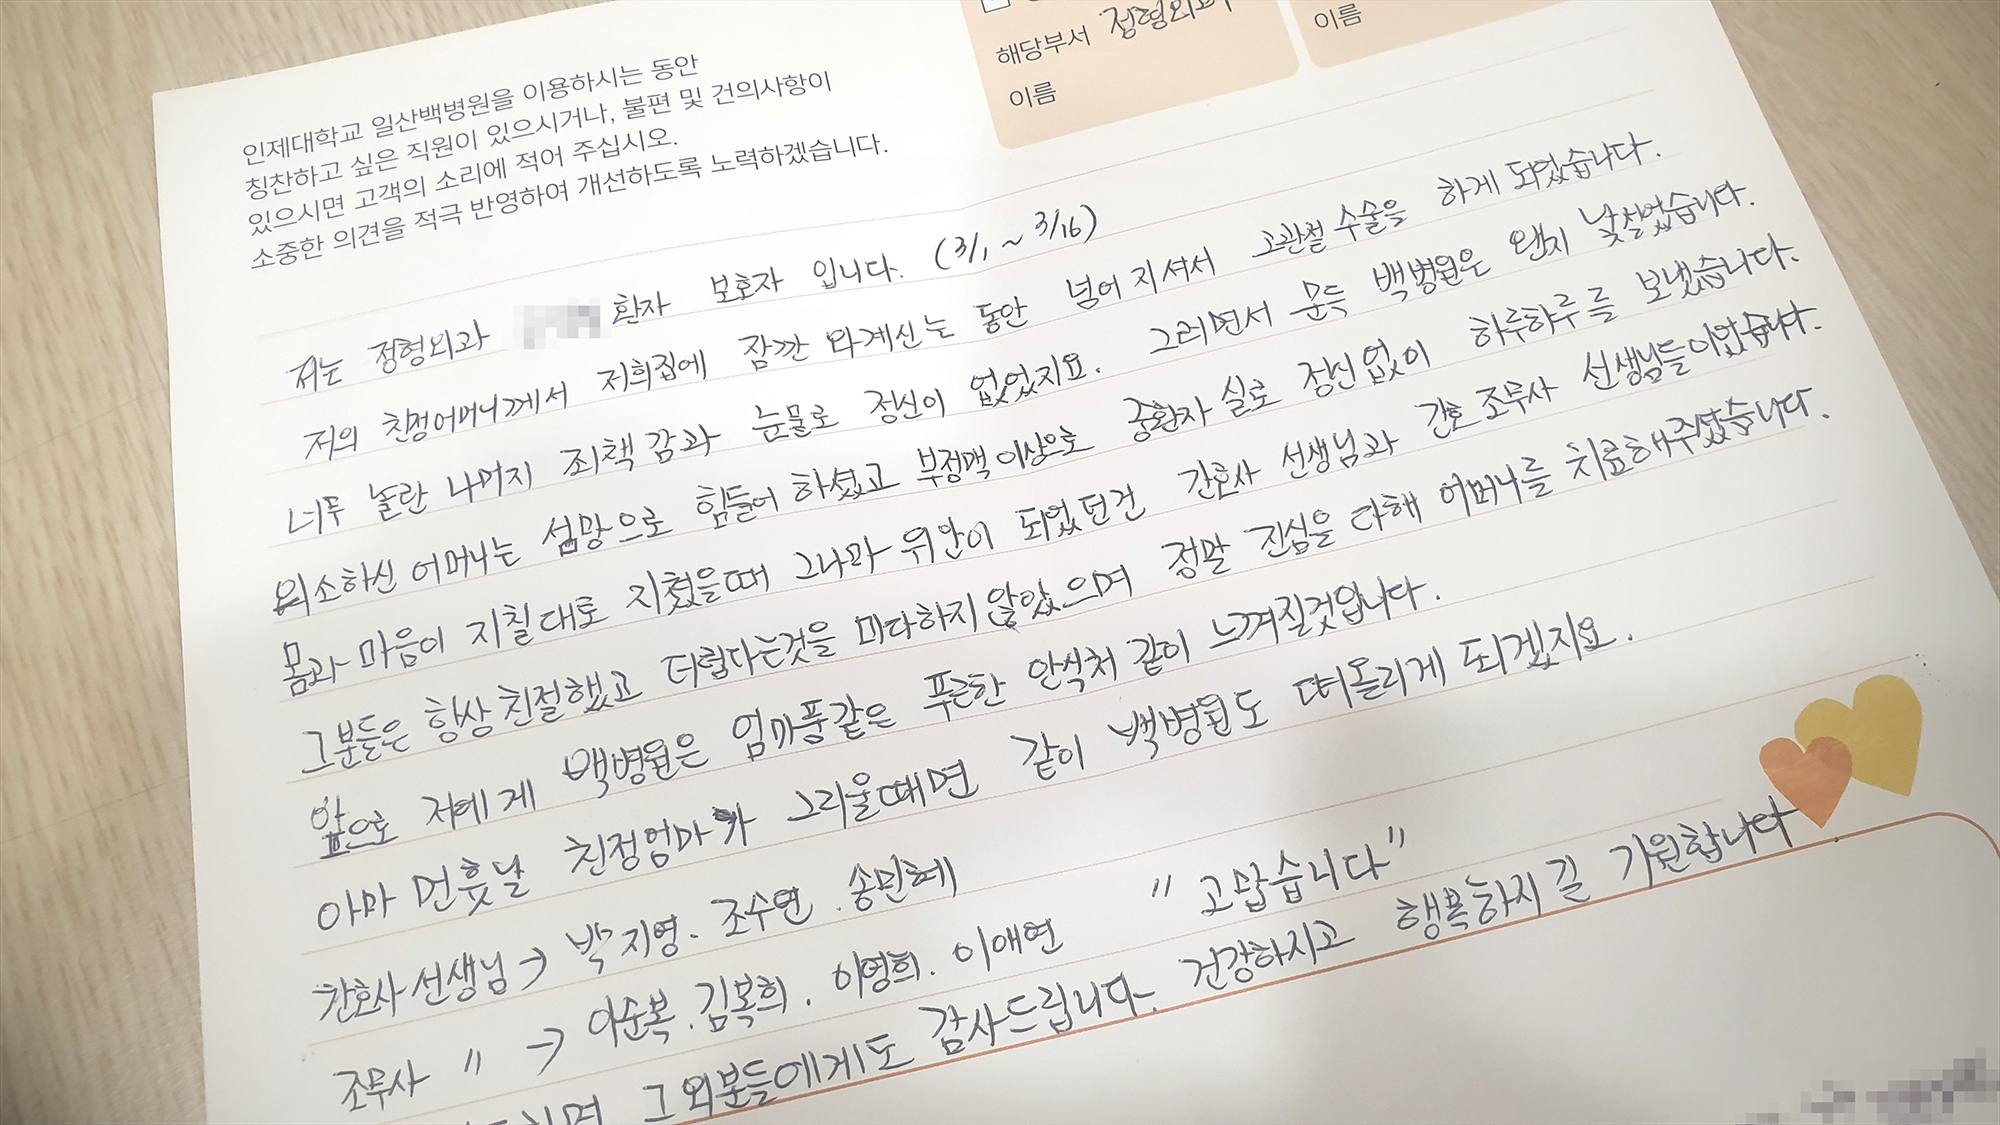 해당부서 정형외과
이름
이름
인제대학교 일산백병원을 이용하시는 동안
칭찬하고 싶은 직원이 있으시거나, 불편 및 건의사항이
있으시면 고객의 소리에 적어 주십시오.
소중한 의견을 적극 반영하여 개선하도록 노력하겠습니다.
저는 정형외과 환자 보호자 입니다. (3/1 ~ 3/16)
저의 친정어머니께서 저희집에 잠깐 와계신는 동안 넘어지셔서 고관절 수술을 하게 되었습니다.
너무 놀란 나머지 죄책감과 눈물로 정신이 없었지요. 그러면서 문득 백병원은 왠지 낯설었습니다.
왜소하신 어머니는 섬망으로 힘들어 하셨고 부정맥 이상으로 중환자실로 정신없이 하루하루를 보냈습니다.
몸과 마음이 지칠대로 지쳤을때 그나마 위안이 되었던건 간호사 선생님과 간호조무사 선생님들이었습니다.
그분들은 항상 친절했고 더럽다는것을 마다하지 않았으며 정말 진심을 다해 어머니를 치료해주셨습니다.
앞으로 저에게 백병원은 엄마풍같은 푸근한 안식처 같이 느껴질것입니다.
아마 먼훗날 친정엄마가 그리울때면 같이 백병원도 떠올리게 되겠지요.
간호사선생님 → 박지영. 조수연. 송민혜
조무사 " → 이순복. 김복희. 이영희. 이애연 " 고맙습니다"
그외분들에게도 감사드립니다. 건강하시고 행복하시길 기원합니다